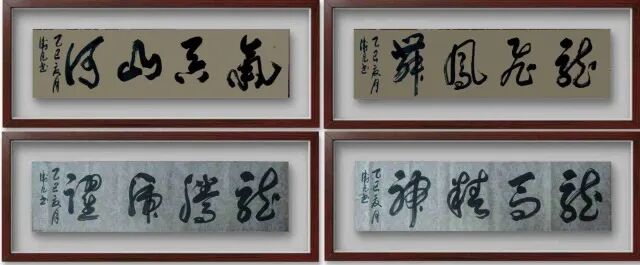 氣吞山河
乙巳夏月
龍飛鳳舞
乙巳夏月
龍騰虎躍
乙巳夏月
龍馬精神
乙巳夏月